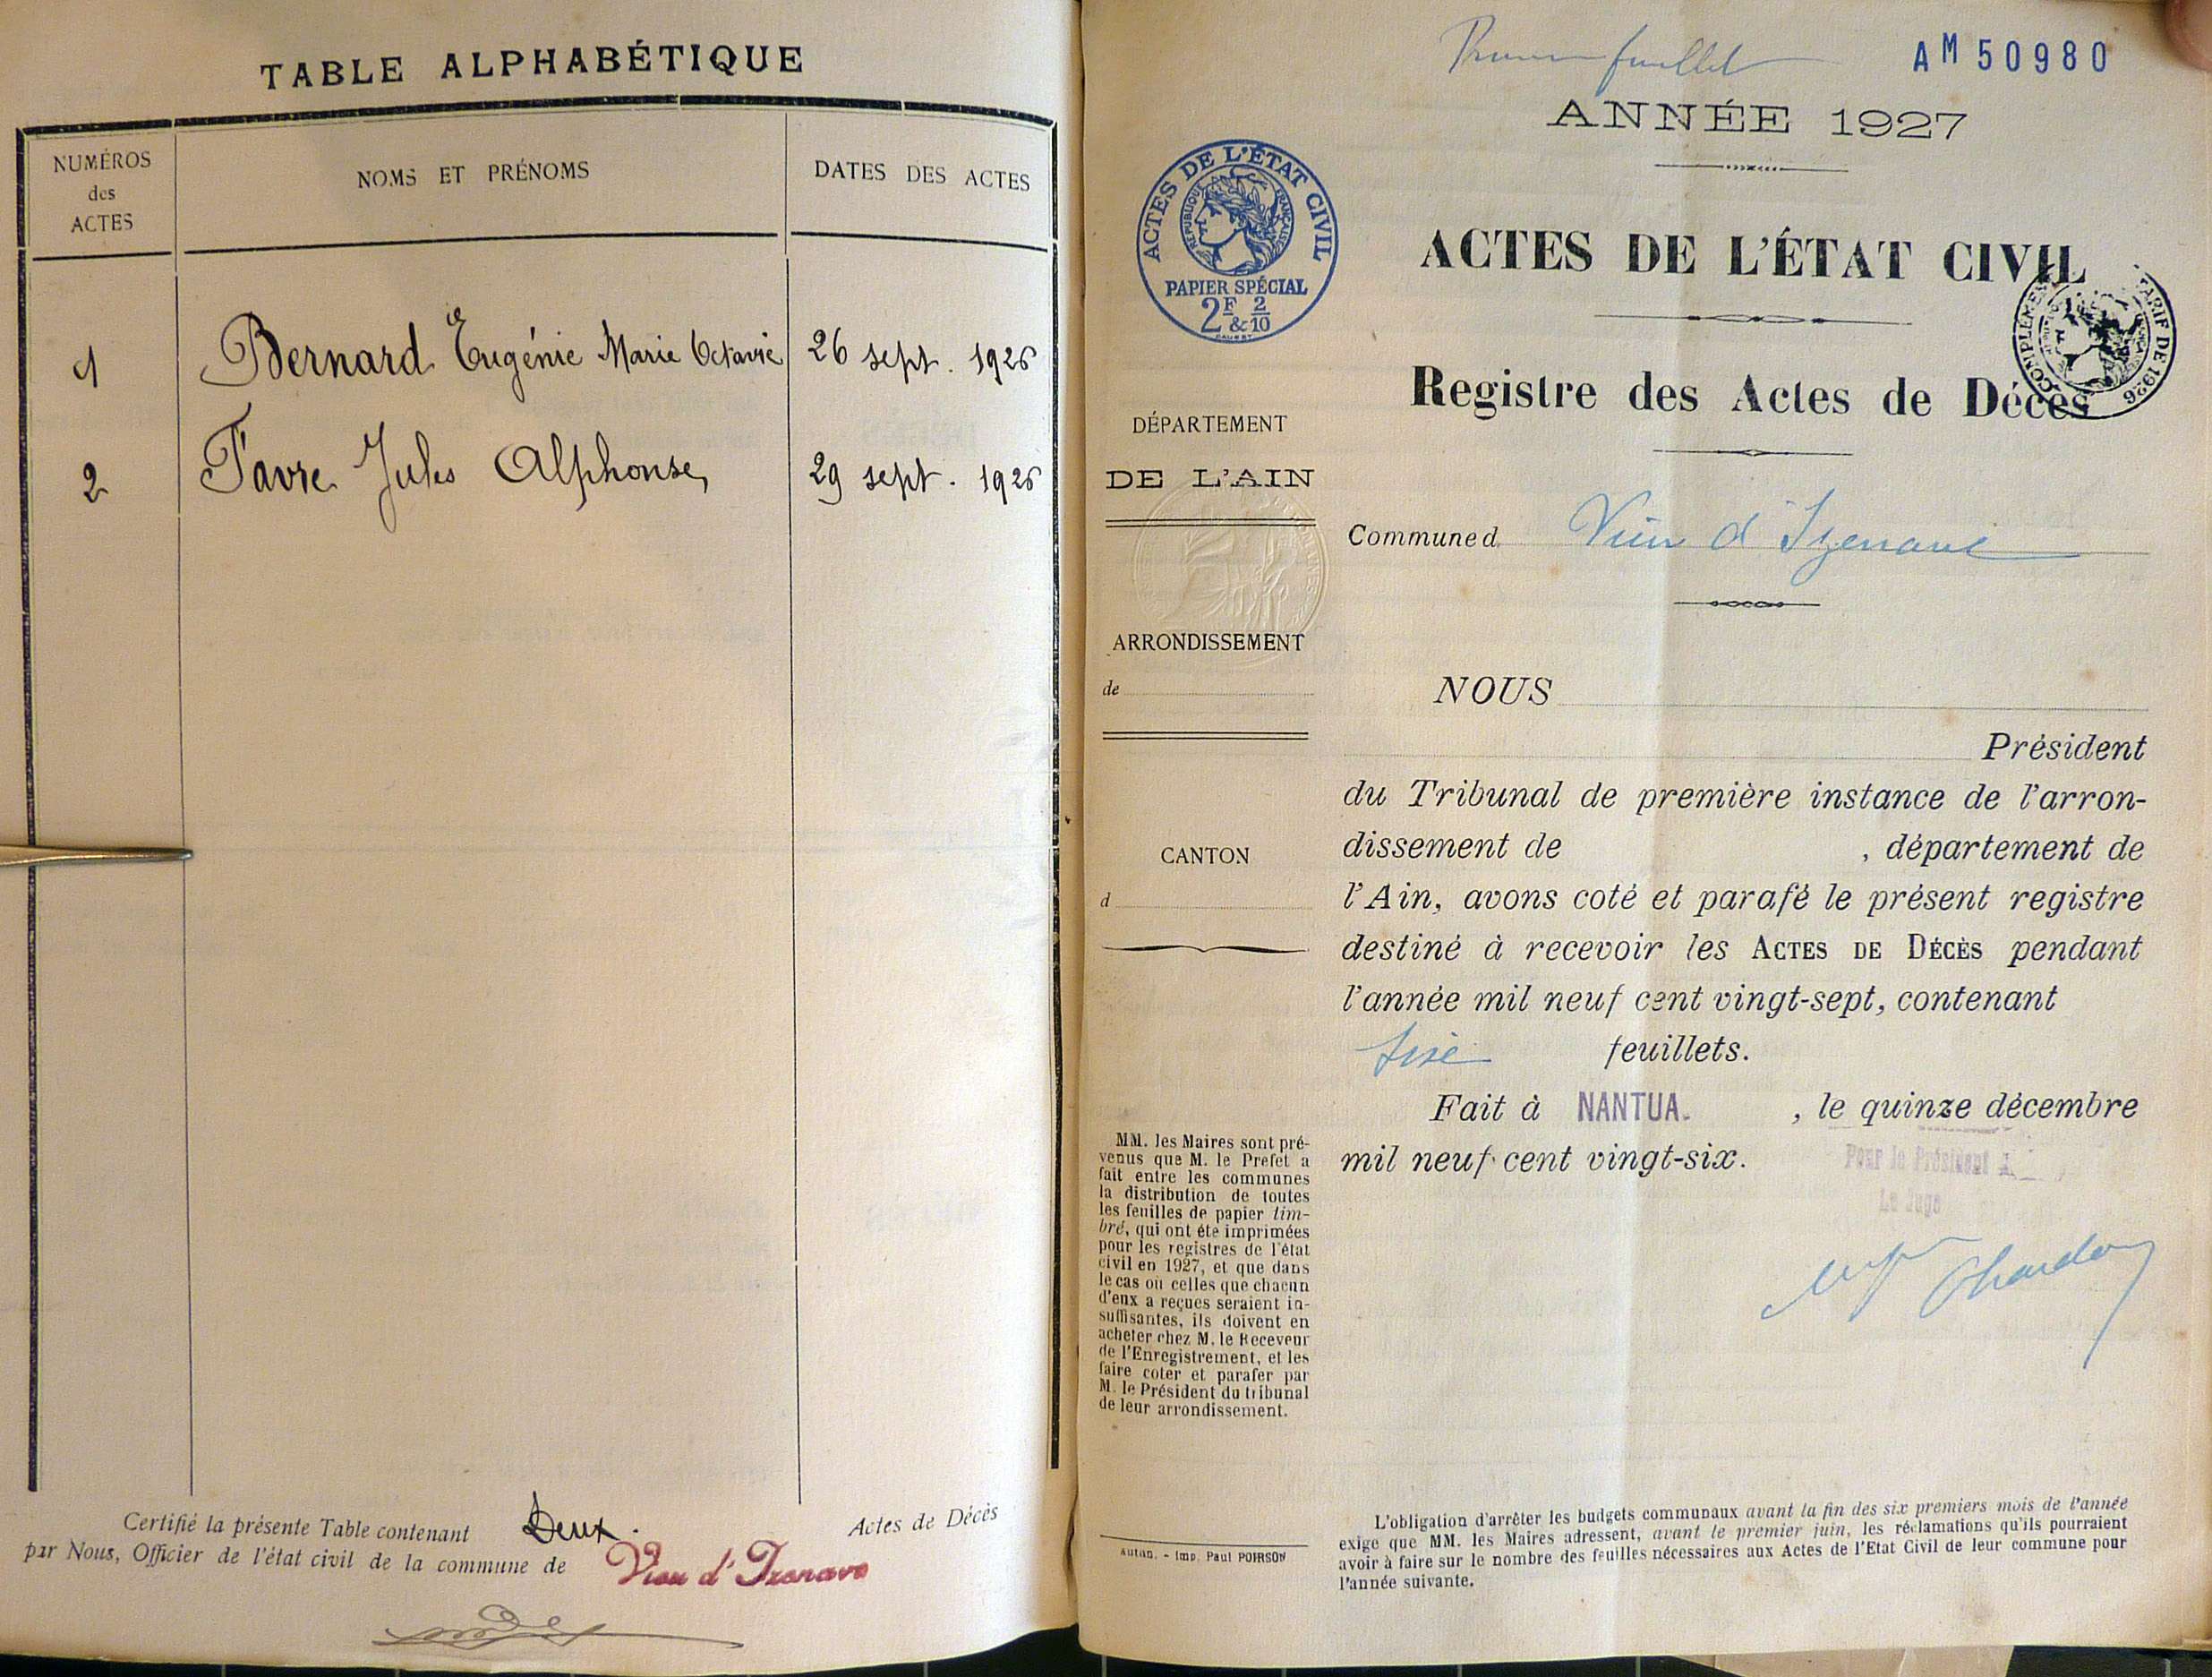 TABLE ALPHABÉTIQUE
NUMÉROS
des
ACTES
NOMS ET PRÉNOMS
DATES DES ACTES
1 Bernard Eugénie Marie Octavie 26 sept. 1926
2 Favre Jules Alphonse, 29 sept. 1926
Certifié la présente Table contenant Deux. Actes de Décès
par Nous, Officier de l'état civil de la commune de Vieu d'Izenave
feuillet
AM 50980
ANNÉE 1927
ACTES DE L'ÉTAT CIVIL
RÉPUBLIQUE FRANÇAISE
PAPIER SPÉCIAL
2F & 2/10
ACTES DE L'ÉTAT CIVIL
COMPLÉMENT TARIF DE 1926
Registre des Actes de Décès
DÉPARTEMENT
DE L'AIN
Commune d Vieu d'Izenave
ARRONDISSEMENT
de
NOUS
Président
du Tribunal de première instance de l'arron-
dissement de , département de
l'Ain, avons coté et parafé le présent registre
destiné à recevoir les ACTES DE DÉCÈS pendant
l'année mil neuf cent vingt-sept, contenant
feuillets.
Fait à NANTUA. , le quinze décembre
mil neuf cent vingt-six.
Pour le Président
Le Juge
CANTON
d
MM. les Maires sont pré-
venus que M. le Prefet a
fait entre les communes
la distribution de toutes
les feuilles de papier tim-
bré, qui ont été imprimées
pour les registres de l'état
civil en 1927, et que dans
le cas où celles que chacun
d'eux a reçues seraient in-
suffisantes, ils doivent en
acheter chez M. le Receveur
de l'Enregistrement, et les
faire coter et parafer par
M. le Président du tribunal
de leur arrondissement.
Autun. - Imp. Paul POIRSON
L'obligation d'arrêter les budgets communaux avant la fin des six premiers mois de l'année
exige que MM. les Maires adressent, avant le premier juin, les réclamations qu'ils pourraient
avoir à faire sur le nombre des feuilles nécessaires aux Actes de l'Etat Civil de leur commune pour
l'année suivante.